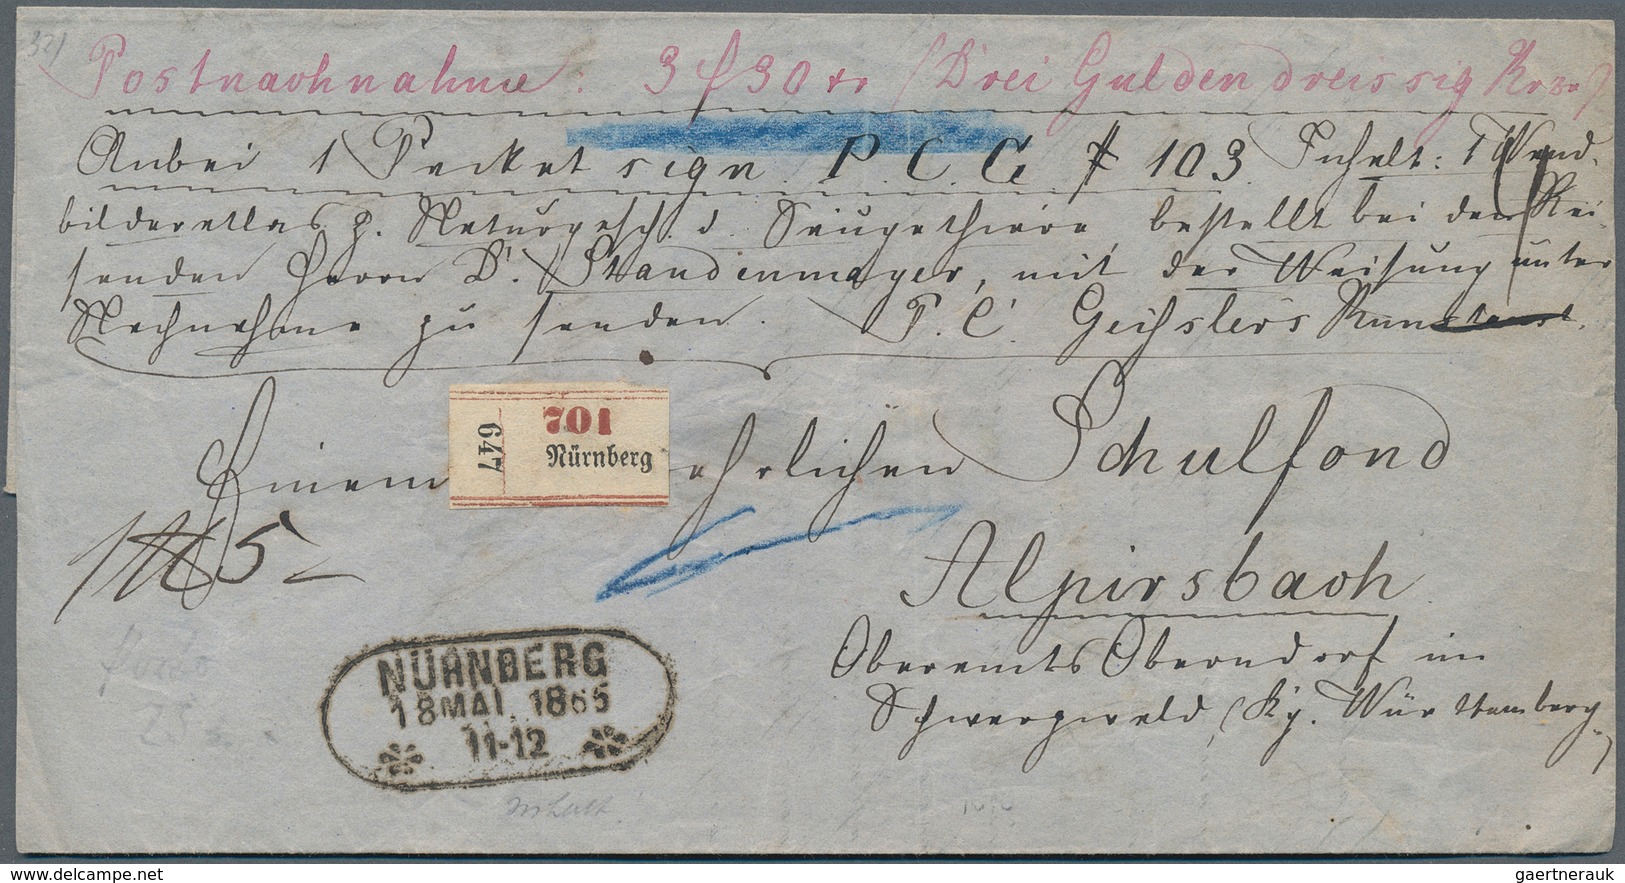 Postnachnahme: 3 f 30 xr (Drei Gulden dreissig Krzr)
Anbei 1 Packet sign P. C. G # 103 Inhalt: 1 Wand-
bilderatlas z. Naturgesch. d. Säugethiere, bestellt bei dem Rei-
senden Herrn Dr. Staudenmayer, mit der Weisung unter
Nachnahme zu senden. P. C. Geissler's Kunstanst.
701
647
Nürnberg
Einem ehrlichen Schulfond
5
Alpirsbach
Oberamts Oberndorf im
Schwarzwald, (Kg. Württemberg)
NÜRNBERG
18 MAI. 1865
11-12
Porto
www.delcampe.net
gaertnerauk